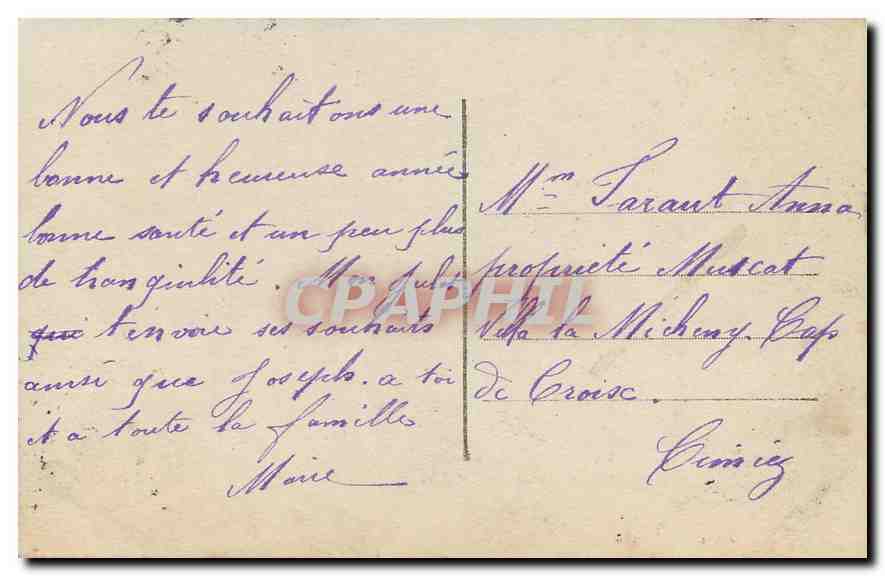 Nous te souhaitons une
bonne et heureuse année
bonne santé et un peu plus
de tranquilité. Mon
qui t'envoie ses souhaits
ainsi que Joseph. a toi
et a toute la famille
Marie
Mme Taraut Anna
propriété Muscat
Villa la Micheny. Cap
de Croix.
Cimiez
CPAPHIL